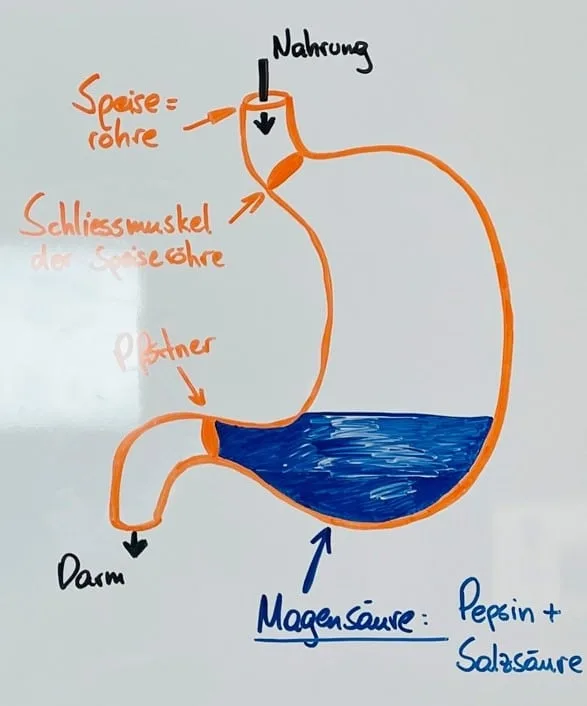 Nahrung
Speise=
röhre
Schliessmuskel
der Speiseröhre
Pförtner
Darm
Magensäure:
Pepsin +
Salzsäure